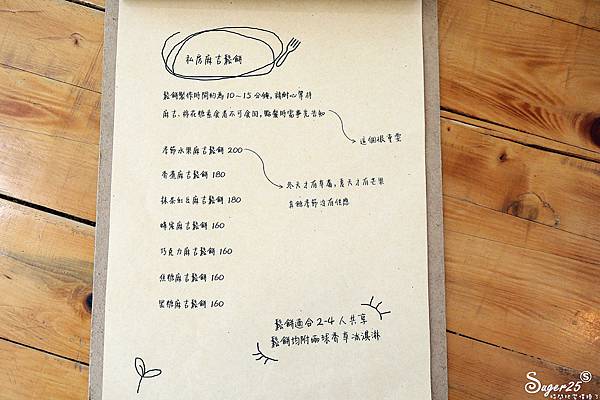 私房麻吉鬆餅
鬆餅製作時間約為10~15分鐘,請耐心等待
麻吉、棉花糖素食者不可食用,點餐時需事先告知
這個很重要
季節水果麻吉鬆餅 200
冬天才有草莓,夏天才有芒果
其他季節沒有任性
香蕉麻吉鬆餅 180
抹茶紅豆麻吉鬆餅 180
蜂蜜麻吉鬆餅 160
巧克力麻吉鬆餅 160
焦糖麻吉鬆餅 160
黑糖麻吉鬆餅 160
鬆餅適合2-4人共享
鬆餅均附兩球香草冰淇淋
Suger25 S